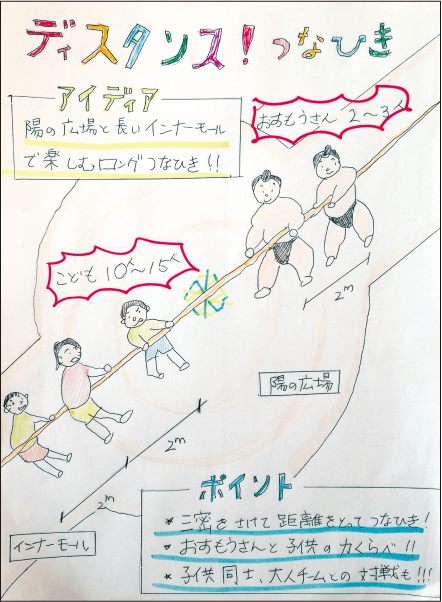 ディスタンス！つなひき
アイディア
陽の広場と長いインナーモール
で楽しむロングつなひき!!
おすもうさん 2〜3人
こども 10人〜15人
2m
陽の広場
2m
2m
インナーモール
ポイント
* 三密をさけて距離をとってつなひき!
* おすもうさんと子供の力くらべ!!
* 子供同士、大人チームとの対戦も!!!